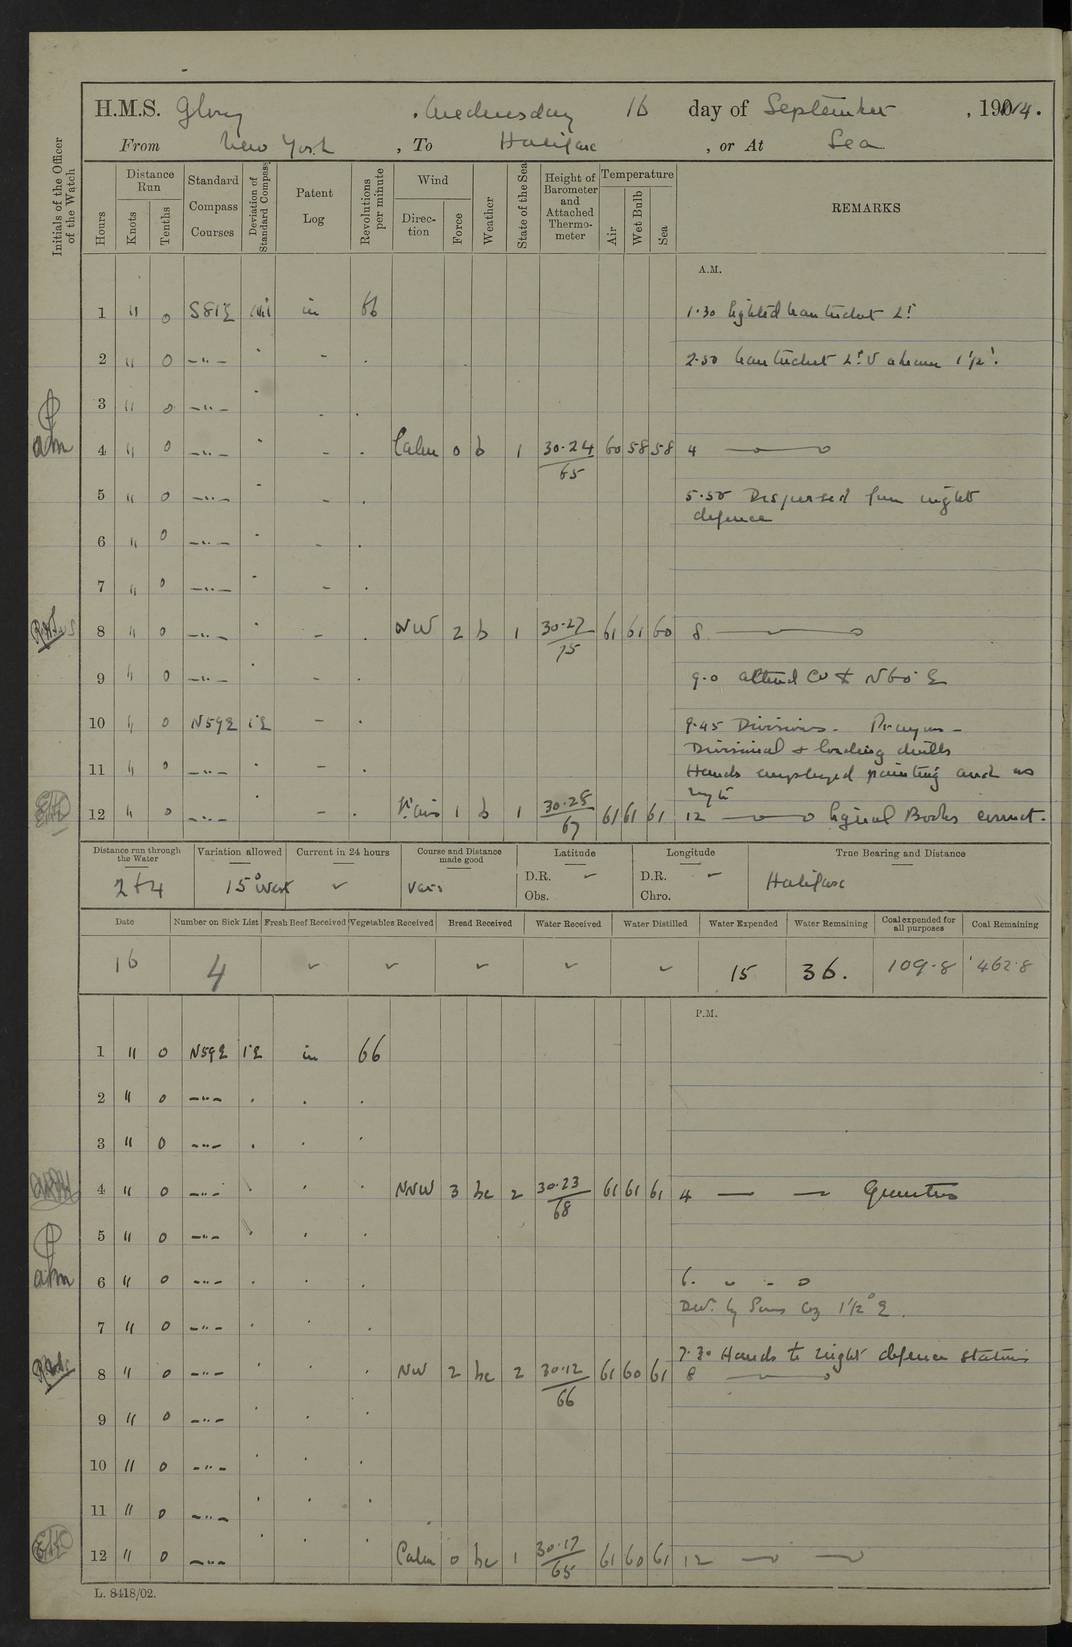 H.M.S. Glory , Wednesday 16 day of September , 1914.
From New York , To Halifax , or At Sea
Initials of the Officer of the Watch
Hours
Distance Run
Knots
Tenths
Standard Compass Courses
Deviation of Standard Compass
Patent Log
Revolutions per minute
Wind
Direction
Force
Weather
State of the Sea
Height of Barometer and Attached Thermometer
Temperature
Air
Wet Bulb
Sea
REMARKS
A.M.
1 11 0 S81E Nil in 66 1.30 Sighted Nantucket Lt
2 11 0 —"— 2.50 Nantucket Lt V abeam 1½'.
3 11 0 —"—
4 11 0 —"— Calm 0 b 1 30.24 65 60 58 58 4
5 11 0 —"— 5.50 Dispersed from night
defence
6 11 0 —"—
7 11 0 —"—
8 11 0 —"— NW 2 b 1 30.27 75 61 61 60 8
9 11 0 —"— 9.0 altered Co to N60°E
10 11 0 N59E 1°E 9.45 Divisions. Prayers —
Divisional & loading drills
11 11 0 —"— Hands employed painting and as
12 11 0 —"— Lt airs 1 b 1 30.25 67 61 61 61 12 Signal Books correct.
Distance run through the Water
Variation allowed
Current in 24 hours
Course and Distance made good
Latitude
Longitude
True Bearing and Distance
264 15° West Var: D.R. Obs. D.R. Chro. Halifax
Date
Number on Sick List
Fresh Beef Received
Vegetables Received
Bread Received
Water Received
Water Distilled
Water Expended
Water Remaining
Coal expended for all purposes
Coal Remaining
16 4 15 36. 109.8 462.8
P.M.
1 11 0 N59E 1°E in 66
2 11 0 —"—
3 11 0 —"—
4 11 0 —"— NNW 3 bc 2 30.23 68 61 61 61 4 — — Quarters
5 11 0 —"—
6 11 0 —"— 6.
Dev. by Suns Brg 1½° E.
7 11 0 —"—
7.30 Hands to night defence stations
8 11 0 —"— NW 2 bc 2 30.12 66 61 60 61 8
9 11 0 —"—
10 11 0 —"—
11 11 0 —"—
12 11 0 —"— Calm 0 bc 1 30.17 65 61 60 61 12
L. 8418/02.